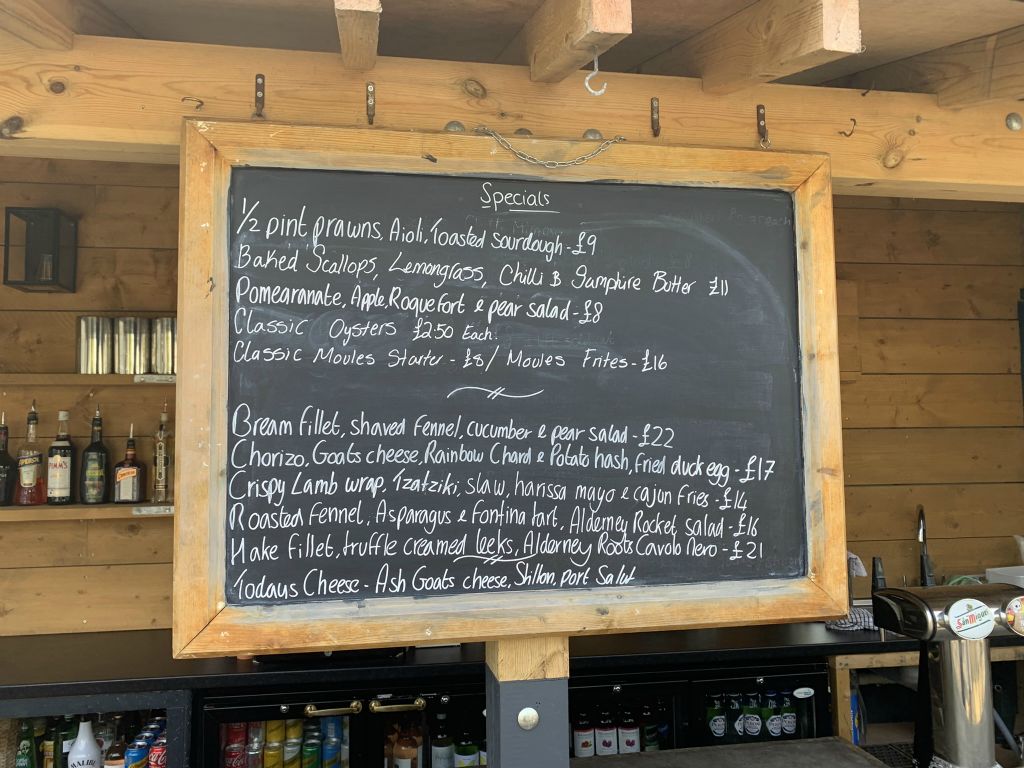 Specials
1/2 pint prawns, Aioli, Toasted sourdough - £9
Baked Scallops, Lemongrass, Chilli & Samphire Butter £11
Pomegranate, Apple, Roquefort & pear salad - £8
Classic Oysters £2.50 Each.
Classic Moules Starter - £8/ Moules Frites - £16
Bream fillet, shaved fennel, cucumber & pear salad - £22
Chorizo, Goats cheese, Rainbow Chard & Potato hash, fried duck egg - £17
Crispy Lamb wrap, Tzatziki, slaw, harissa mayo & cajun fries - £14
Roasted Fennel, Asparagus & fontina tart, Alderney Rocket, salad - £16
Hake fillet, truffle creamed leeks, Alderney Roots Cavolo Nero - £21
Todays Cheese - Ash Goats cheese, Stilton, port Salut
PIMM'S
San Miguel
MALIBU